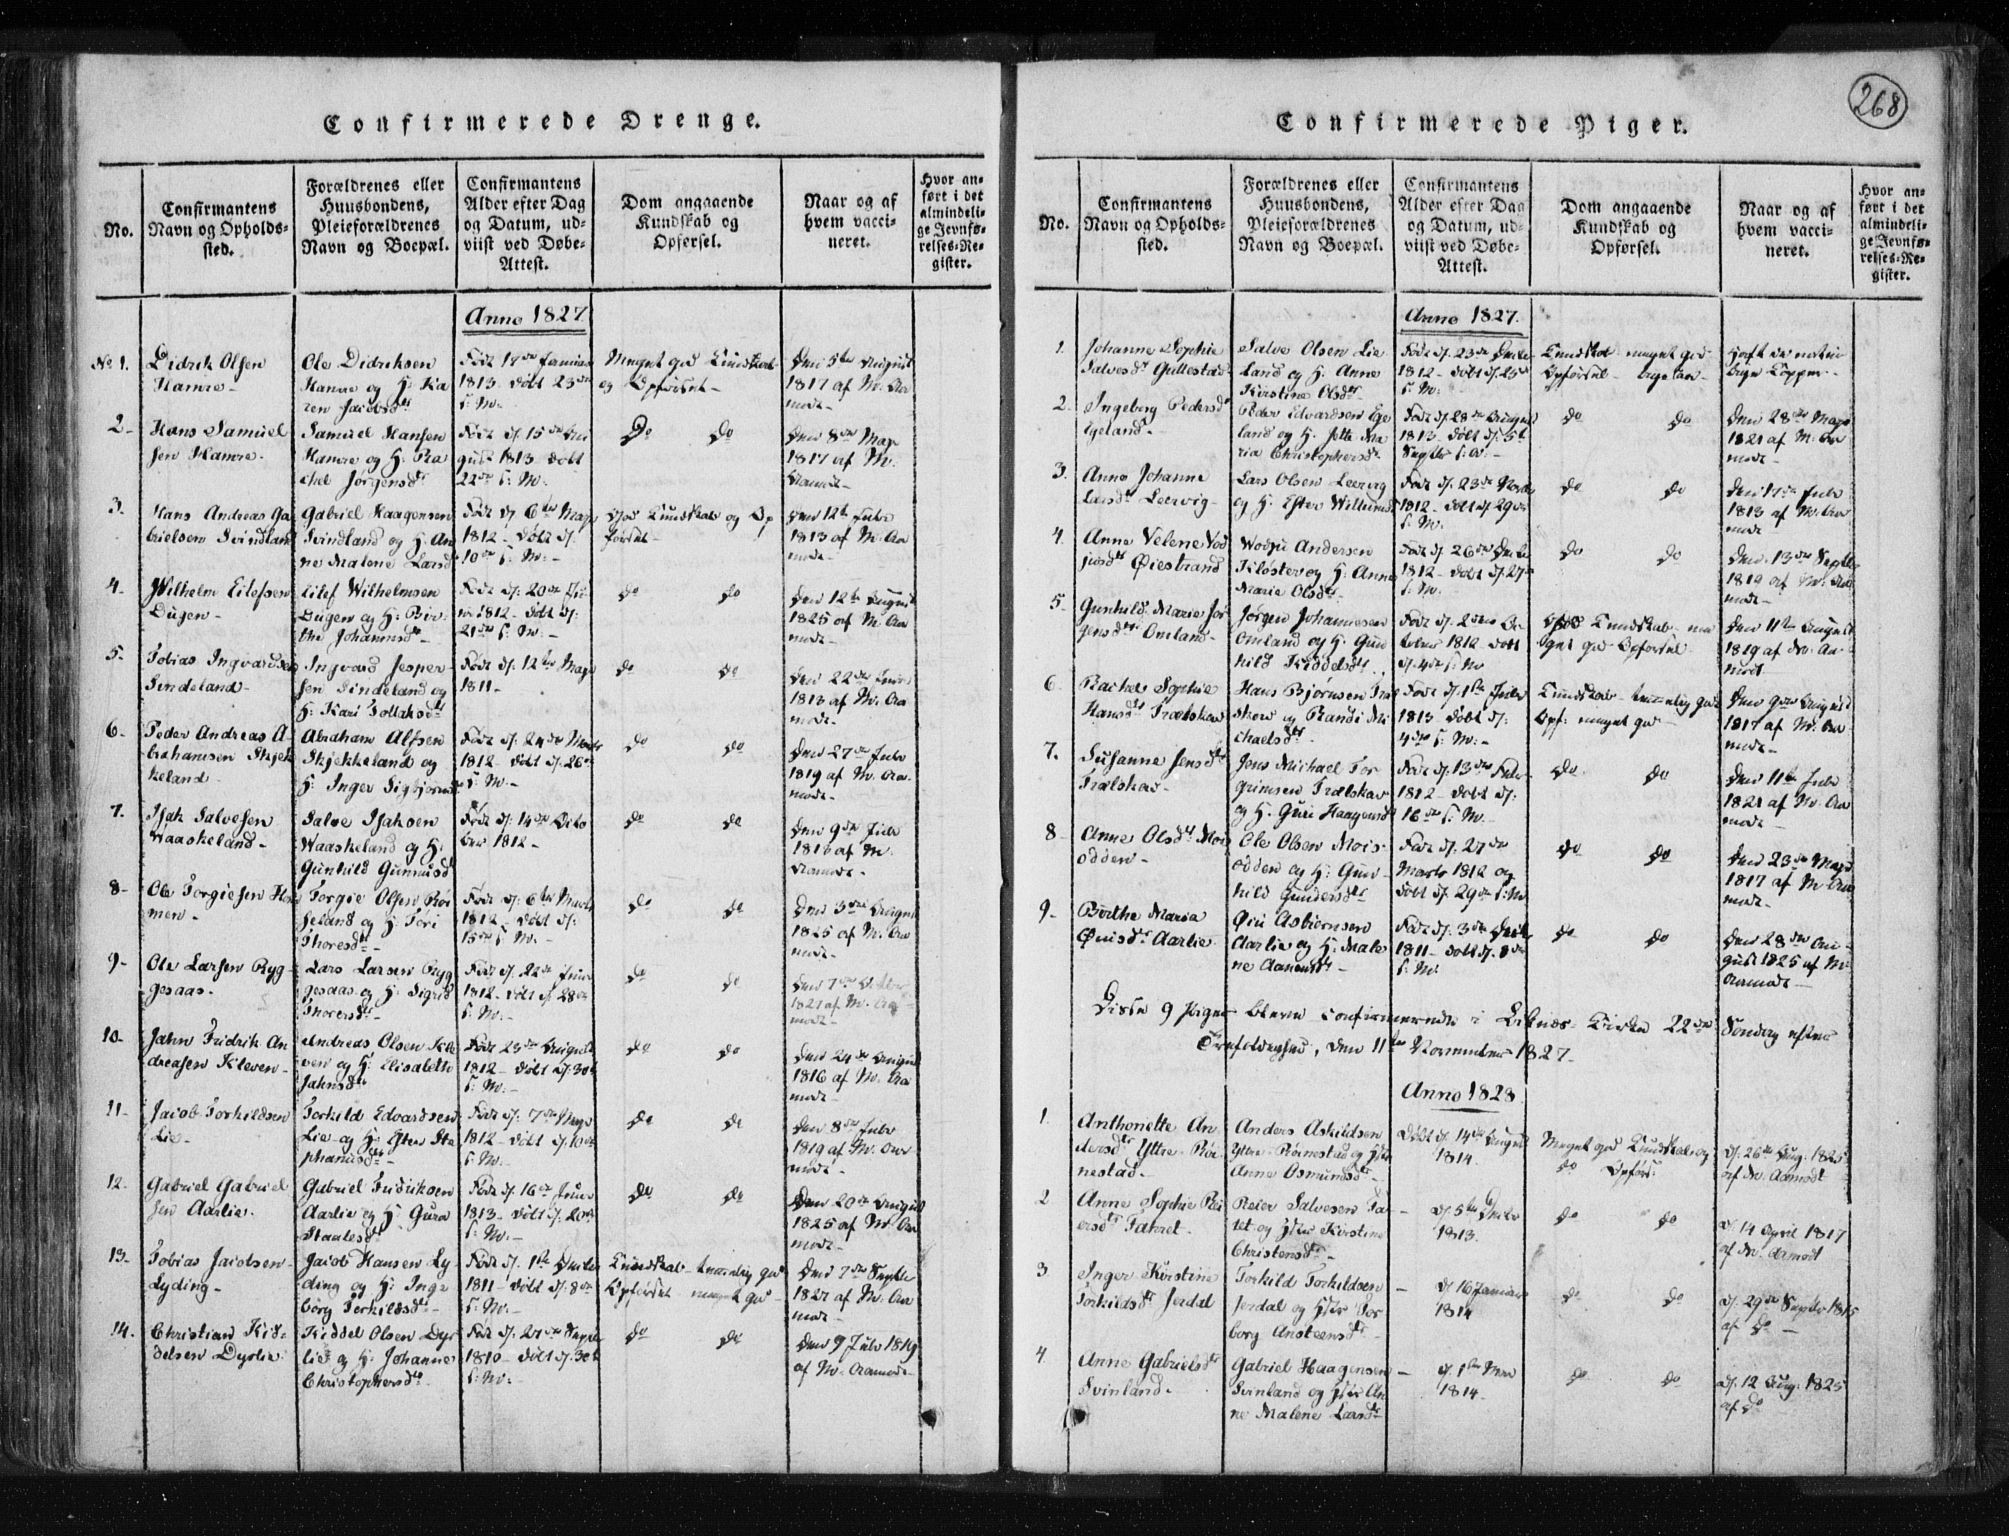 268
Confirmerede Drenge.
No.
Confirmantens
Navn og Opholds-
sted.
Forældrenes eller
Huusbondens,
Pleieforældrenes
Navn og Boepæl.
Confirmantens
Alder efter Dag
og Datum, ud-
viist ved Døbe-
Attest.
Dom angaaende
Kundskab og
Opførsel.
Naar og af
hvem vacci-
neret.
Hvor an-
ført i det
almindeli-
ge Jevnfø-
relses-Re-
gister.
Anno 1827
No 1.
Didrik Olsen
Hamre-
Ole Didriksen
Hamre og H: Ka
ren Jacobsdtr
Født 17de Januar
1813. døbt 23de
s: M.
Meget god Kundskab
og Opførsel-
Den 5te August
1817 af M: Aa
modt-
2-
Hans Samuel
sen Hamre.
Samuel Hansen
Hamre og H: Ra
chel Jørgensdtr
Født d. 15de Au
gust 1813 døbt
22de s: M.
Do Do
Den 8de May
1817 af M.
Aamodt-
3.
Hans Andreas Ga
brielsen Svindland
Gabriel Haagensen
Svindland og H: An
ne Malene Larsd
Født d. 6te May
1812- døbt d.
10de s: M:-
God Kundskab og Op
førsel-
Den 12te Julii
1813 af M: Aa
modt-
4-
Wilhelm Eilefsen
Dugen-
Eilef Wilhelmsen
Dugen og H: Bir
the Johannsdtr-
Født d: 20de
1812- døbt d:
21de s: M:-
do do
Den 12te August
1825 af M. Aa
modt-
5-
Tobias Ingvardsen
Sindeland-
Ingvard Jesper
sen Sindeland og
H: Kari Tollaksdtr
Født d: 12te May
1811-
do do
Den 22de
1813 af M: Aa
modt-
6-
Peder Andreas A-
brahamsen Skjek
keland-
Abraham Alfsen
Skjekkeland og
H: Inger Sigbjørnsd
Født d: 24de Marts
1812- døbt d. 26de
s: M-
do do
Den 27de Julii
1819 af M. Aa
modt-
7.
Isak Salvesen
Waaskeland-
Salve Isaksen
Waaskeland og H:
Gunhild Gunnusd
Født d: 14de Octo
ber 1812-
do do
Den 9de Julii
1816 af M.
Aamodt-
8-
Ole Torgiesen Ho
men-
Torgie Olsen Røi
seland og H: Tori
Thoresdtr-
Født d: 6te Marts
1812- døbt d:
15de s: M-
do do
Den 3die August
1825 af M. Aa
modt-
9-
Ole Larsen Ryg-
gesaas.
Lars Larsen Ryg
gesaas og H: Sigrid
Thorersdtr-
Født d. 22de
1812- døbt d 28de
s: M.
do do
Den 7de October
1821 af M. Aa
modt-
10-
Jahn Fridrik An
dreasen Kleven-
Andreas Olsen Kle
ven og H: Elisabeth
Jahnsdtr
Født 23de August
1812- døbt d: 30te
s: M:-
do do
Den 24de August
1816 af M. Aa
modt-
11-
Jacob Torkildsen
Lie-
Torkild Edvardsen
Lie og H: Ester Ste
phansdtr-
Født d. 7de May
1812- døbt d. 10de
s: M:-
do do
Den 8de Julii
1819 af M. Aa
modt-
12-
Gabriel Gabriel
sen Aarlie.
Gabriel Fridriksen
Aarlie og H: Guro
Staalesd
Født d. 16de
1813- døbt d. 20de
s: M-
do do
Den 20de August
1825 af M. Aa
modt-
13-
Tobias Jacobsen
Lyding-
Jacob Hansen Ly-
ding og H: Inge
borg Torkildsdtr
Født d. 1ste Decbr
1811- døbt d: 8de
s: M:-
Kundskab temmelig god
Opførsel meget god-
Den 7de Septbr
1821 af M. Aa
modt-
14.
Christian Kid-
delsen Dyrlie.
Kiddel Olsen Dyr
lie og H. Johanne
Christophersdtr
Født d: 21de Septbr
1810- døbt d: 30te
s: M:-
do do
Den 9 Julii 1819
af M. Aamodt-
Confirmerede Piger.
No.
Confirmantens
Navn og Opholds-
sted.
Forældrenes eller
Huusbondens,
Pleieforældrenes
Navn og Boepæl.
Confirmantens
Alder efter Dag
og Datum, ud-
viist ved Døbe-
Attest.
Dom angaaende
Kundskab og
Opførsel.
Naar og af
hvem vacci-
neret.
Hvor an-
ført i det
almindeli-
ge Jevnfø-
relses-Re-
gister.
Anno 1827.
1.
Johanne Sophie
Salvesdtr Gullestad
Salve Olsen Lie
Land og H: Anne
Kirstine Olsdtr-
Født d. 23de Decbr
1812- døbt d. 25de
s: M.
Kundskab meget god
Opførsel
Havt de naturlige
Kopper-
2.
Ingeborg Pedersdtr
Egeland-
Peder Edvardsen Ege
land og H. Jette Ma
ria Christophersdtr
Født d. 28de August
1813- døbt d: 5te
Septbr
do do
Den 28de May
1821 af M. Aa
modt-
3.
Anne Johanne
Larsdtr Leervig-
Lars Olsen Leervig
og H. Ester Willumsd
Født d. 23de Novbr
1812- døbt d 29de
s: M.
do do
Den 17de Julii
1813 af M. Aa
modt
4.
Anne Velene Vod
juisdtr Øiestrand
Wodju Andersen
Kloster og H: Anne
Marie Olsdtr
Født d. 26de Decbr
1812- døbt d. 27de
s: M.
do do
Den 13de Septbr
1819 af M. Aa
modt-
5-
Gunhild Marie Jør
gensdtr Omland-
Jørgen Johannesen
Omland og H: Gun
hild Kiddelsdtr
Født d. 2den Oc
tober 1812 døbt
d. 4de s: M
God Kundskab me
get god Opførsel
Den 11te August
1819 af M. Aa-
modt
6.
Rachel Sophie
Hansdtr Trælskov
Hans Bjørnsen Træl
skov og Randi Mi
chaelsdtr
Født d. 1ste Julii
1813 døbt d:
4de s: M:-
Kundskab temmelig god
Opf: meget god-
Den 9de August
1817 af M. Aa
modt-
7.
Susanne Jensdtr
Trælskov-
Jens Michael Tor
grimsen Trælskov
og H. Guri Haagensd
Født d. 13de Febr.
1812- døbt d:
16de s: M.
do do
Den 11te Julii
1821 af M. Aa
modt-
8.
Anne Olsdtr Mois
odden-
Ole Olsen Mois-
odden og H: Gun-
hild Gundersdtr
Født d. 27de
Marts 1812 og
døbt d. 29de s: M
do do
Den 23de May
1817 af M. Aa
modt-
9-
Birthe Maria
Øuisdtr Aarlie
Øiu Asbiørnsen
Aarlie og H: Male
ne Aanensdtr-
Født d: 3de Decbr
1811- døbt d. 8de
s: M.
do do
Den 28de Au-
gust 1825 af M.
Aamodt-
Disse 9 Piger bleve confirmerede i Liknes- Kirke 22de Søndag efter
Trefoldighed, den 11te November 1827-
Anno 1828
1.
Anthonette An
dersdtr Yttre- Røi-
nestad-
Anders Askildsen
Yttre- Røinestad og Hstr
Anne Osmundsdtr-
Døbt d. 14de August
1814.
Meget god Kundskab og
do Opførs:
d. 26de Aug: 1825
af M. Aamodt
2
Anne Sophie Rei
ersdtr Fahret-
Reier Salvesen Fa-
ret og Hstr Kirstine
Christensdtr-
- d. 5te Decbr
1813.
do do
d. 14 April 1817
af M. Aamodt
3
Inger Kirstine
Torkildsdtr Jerdal
Torkild Torkildsen
Jerdal og Hstr Tor
borg Ansteensdtr-
- d 16 Januar
1814
do do
d. 29de Septbr 1815
af Do -
4.
Anne Gabrielsdtr
Svinland-
Gabriel Haagensen
Svinland og Hstr An
ne Malene Larsdtr
- d. 1ste Mai
1814-
do do
d. 12 Aug: 1825
af Do